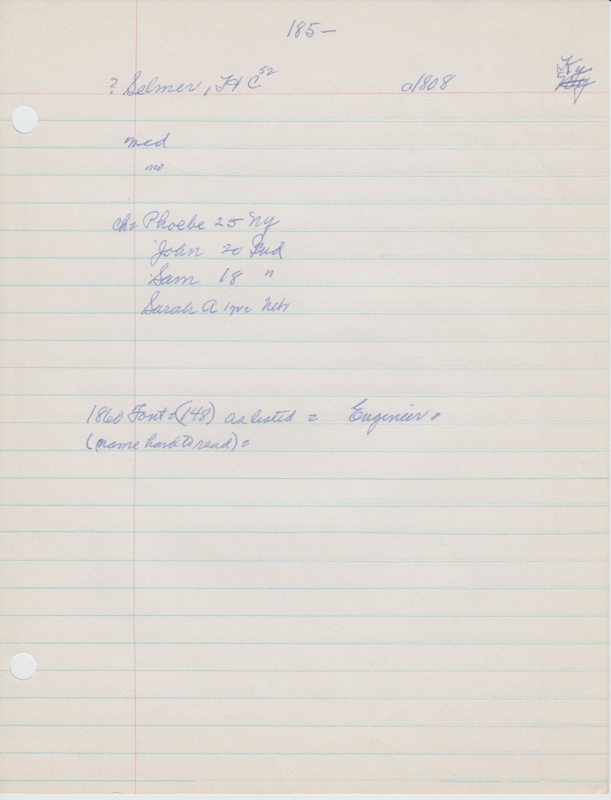 185-
? Selmer, H C 52 a1808 Ky
med
no
ch= Phoebe 25 Ny
John 20 Ind
Sam 18 "
Sarah A 1mo Neb
1860 Font (148) as listed = Engineer =
(name hard to read) =